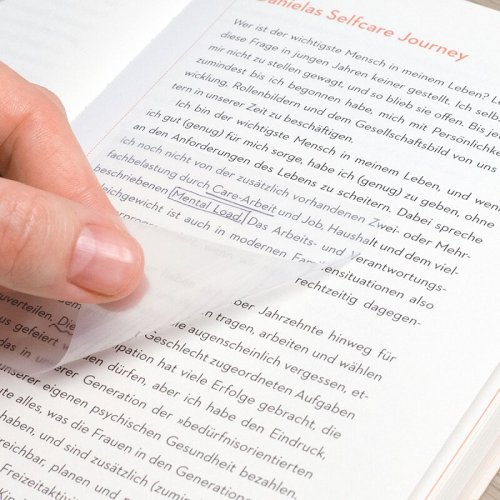 Danielas Selfcare Journey
Wer ist der wichtigste Mensch in meinem Leben?
diese Frage in jungen Jahren keiner gestellt. Ich selb
mir nicht zu stellen gewagt, und so blieb sie offen. Bis je
zumindest bis ich begonnen habe, mich mit Persönlichke
wicklung, Rollenbildern und dem Gesellschaftsbild von uns
tern in unserer Zeit zu beschäftigen.
Ich bin der wichtigste Mensch in meinem Leben, und wenn
ich gut (genug) für mich sorge, habe ich (genug) zu geben, ohne
an den Anforderungen des Lebens zu scheitern. Dabei spreche
ich noch nicht von der zusätzlich vorhandenen Zwei- oder Mehr-
fachbelastung durch Care-Arbeit und Job, Haushalt und dem viel-
beschriebenen Mental Load. Das Arbeits- und Verantwortungs-
gleichgewicht ist auch in modernen Familiensituationen also
rechtzeitig dagegen-
zuverteilen. Die
oer Jahrzehnte hinweg für
us gefeiert
en tragen, arbeiten und wählen
ie augenscheinlich vergessen, et-
Geschlecht zugeordneten Aufgaben
ipation hat viele Erfolge gebracht, die
das in unserer
den dürfen, aber ich habe den Eindruck,
nserer eigenen Generation der »bedürfnisorientierten
ute alles, was die Frauen in den Generationen
haben, und sind zusätzlich (zumin
reichbar, planen und
Freizeitaktiv
psychischen Gesundheit bezahlen.